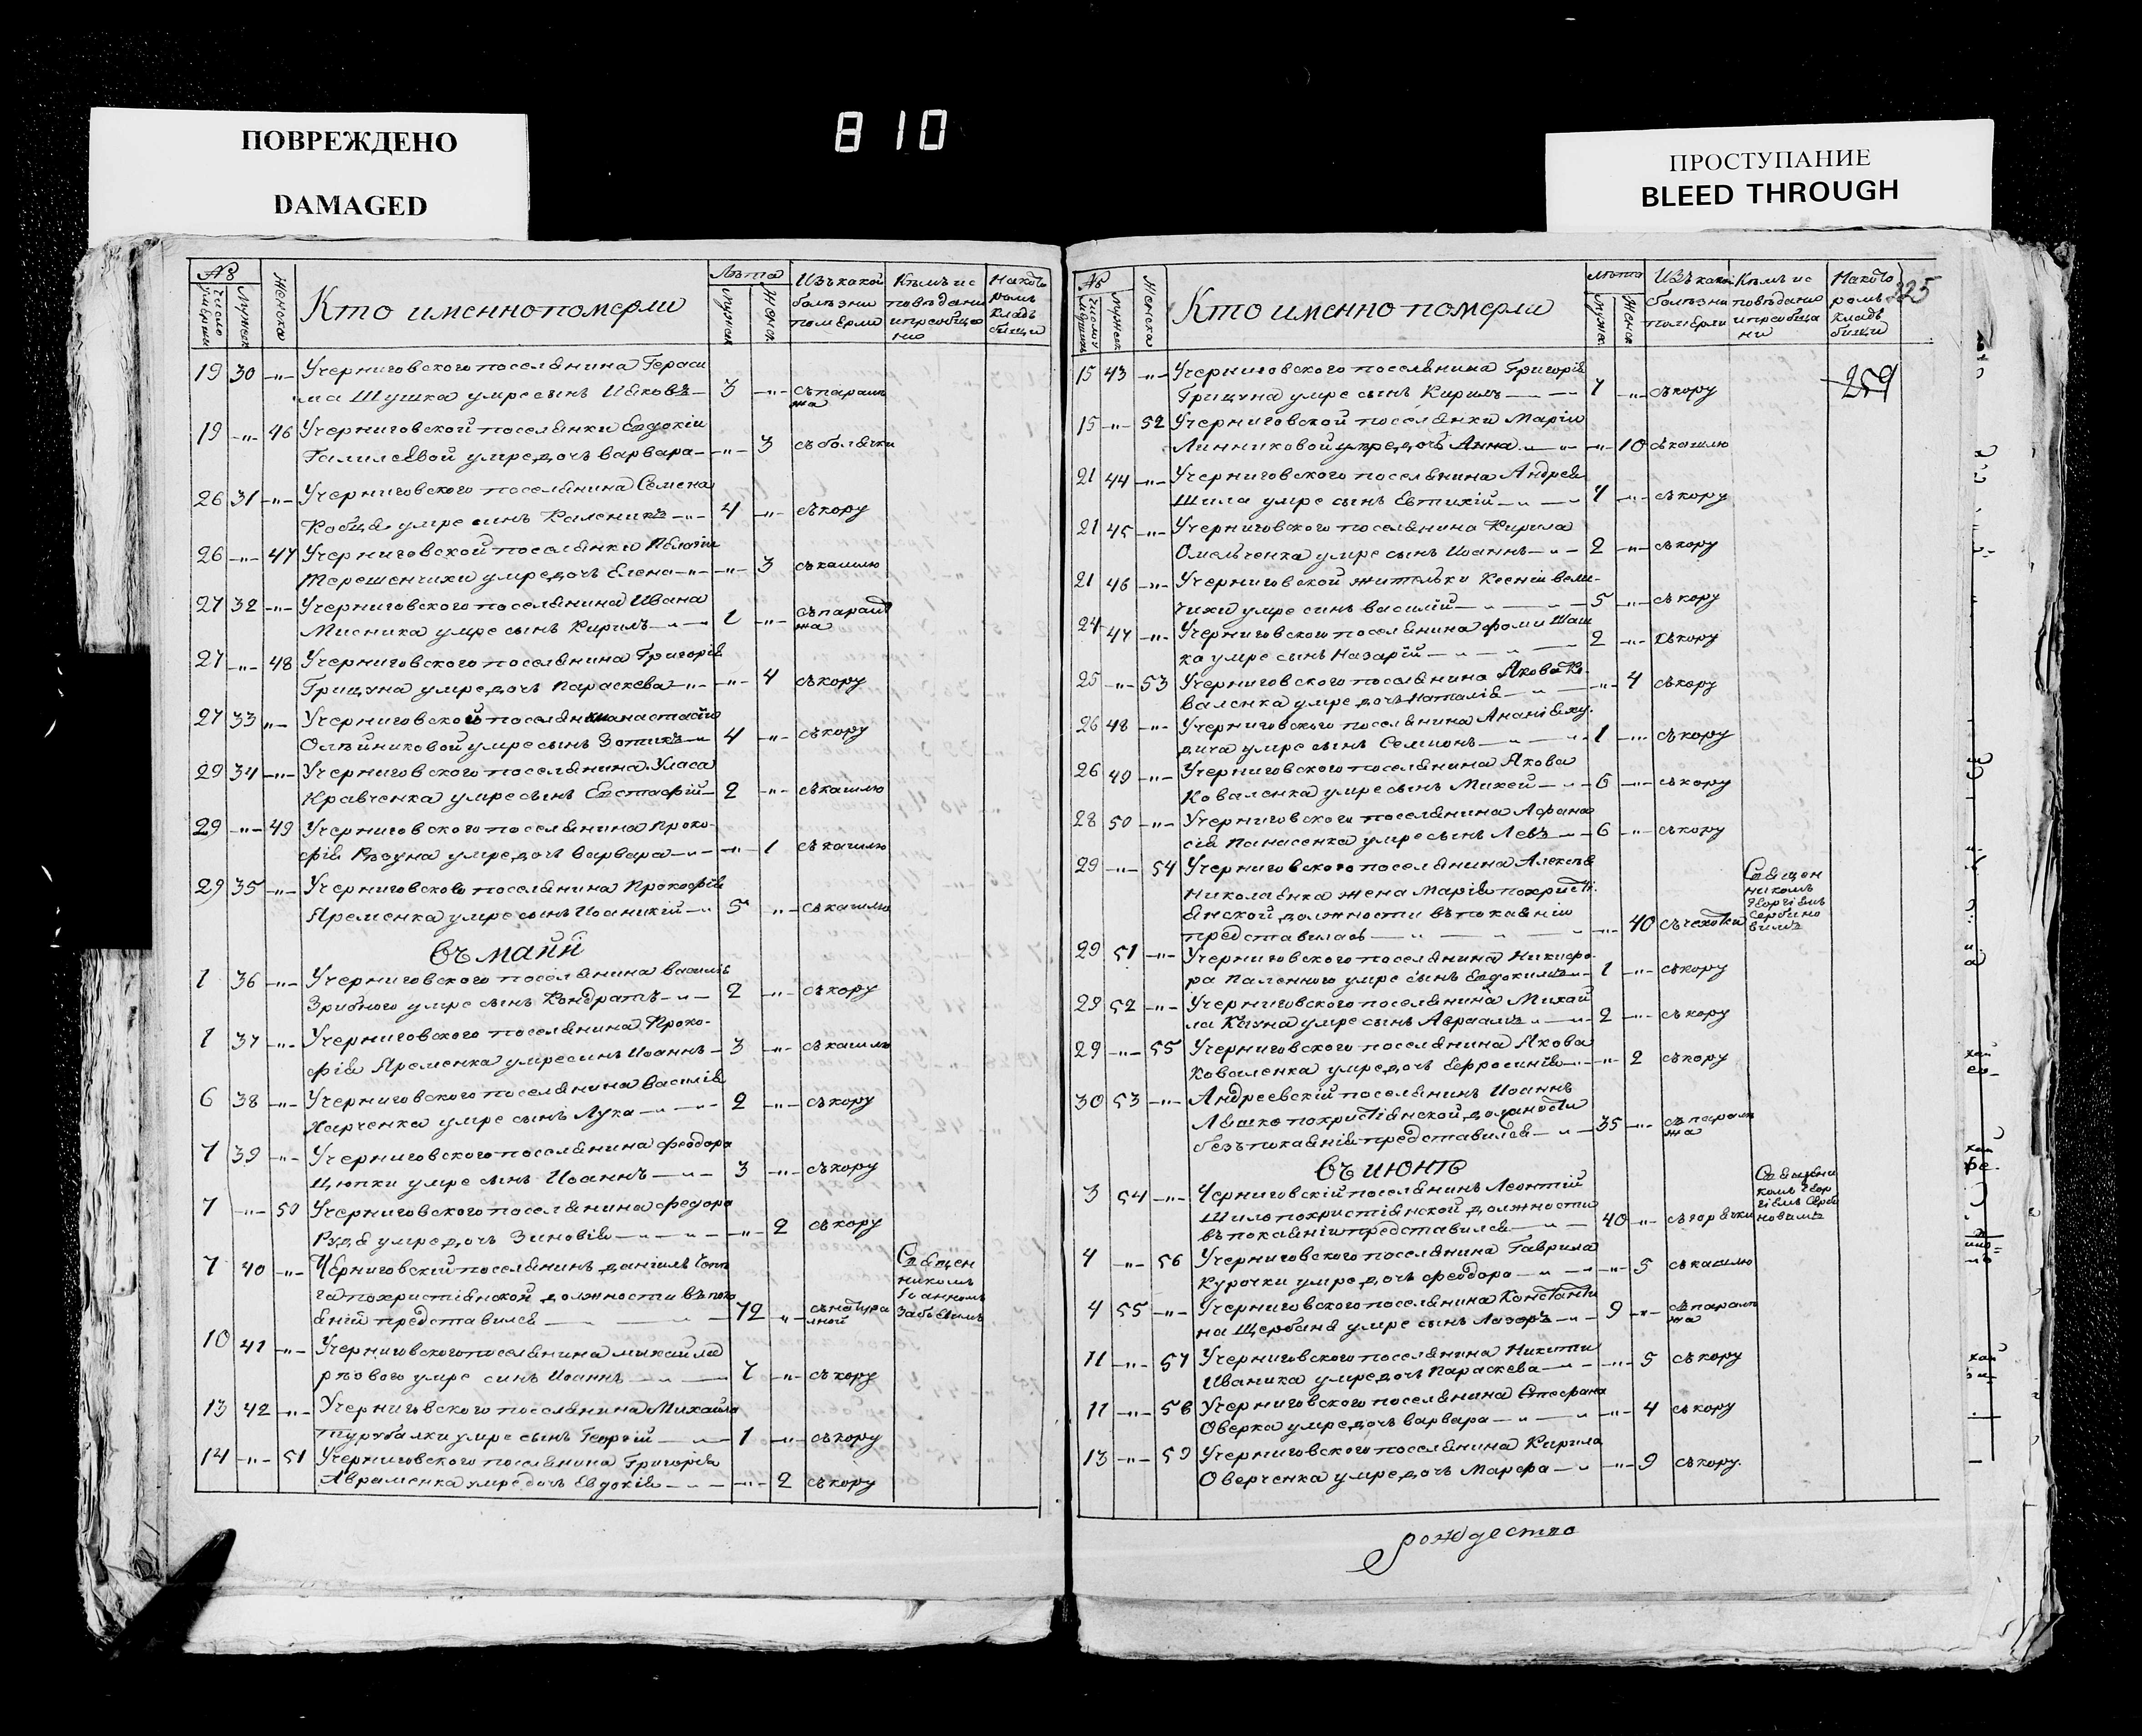 ПОВРЕЖДЕНО
DAMAGED
810
ПРОСТУПАНИЕ
BLEED THROUGH
№
число умершихъ
Мужеск
Женско
Кто именно померли
Лѣта
Мужеск
Женск.
Изъ какой болѣзни померли
Кѣмъ исповѣданы и приобще ны
На кото ромъ кладъ бищи
19 30 —"— Учерниговского поселянина Гераси
ма Шушка умре сынъ Ияковъ — 3 —"— съ парали жа
19 —"— 46 Учерниговской поселянки Евдокіи
Галилеевой умре дочь Варвара — —"— 3 съ болячки
26 31 —"— Учерниговского поселянина Семена
Кобця умре синъ Каленикъ —"— 4 —"— съ кору
26 —"— 47 Учерниговской поселянки Пелагіи
Терешенчихи умре дочь Елена —"— —"— 3 съ кашлю
27 32 —"— Учерниговского поселянина Ивана
Мисника умре сынъ Кирилъ —"— 1 —"— съ парали жа
27 —"— 48 Учерниговского поселянина Григорія
Грицуна умре дочь Параскева —"— —"— 4 съ кору
27 33 —"— Учерниговской поселянки Анастасіи
Олѣйниковой умре сынъ Зотикъ —"— 4 —"— съ кору
29 34 —"— Учерниговского поселянина Уласа
Кравченка умре сынъ Евстафій — 2 —"— съ кашлю
29 —"— 49 Учерниговского поселянина Проко-
фія умре дочь Варвара —"— —"— 1 съ кашлю
29 35 —"— Учерниговского поселянина Прокофія
Яременка умре сынъ Иоаникій —"— 5 —"— съ кашлю
Въ майи
1 36 —"— Учерниговского поселянина Василія
Зрибного умре сынъ Кондратъ —"— 2 —"— съ кору
1 37 —"— Учерниговского поселянина Проко-
фія Яременка умре синъ Иоаннъ — 3 —"— съ кашлю
6 38 —"— Учерниговского поселянина Василія
Харченка умре сынъ Лука —"— 2 —"— съ кору
7 39 —"— Учерниговского поселянина Феодора
Цюпки умре сынъ Иоаннъ —"— 3 —"— съ кору
7 —"— 50 Учерниговского поселянина Федора
Рудя умре дочь Зиновія —"— —"— 2 съ кору
7 40 —"— Черниговскій поселянинъ Даніилъ
га по христіянской должности въ пока
яніи представился — 72 —"— съ натура лной Священ никомъ Іоанномъ
10 41 —"— Учерниговского поселянина Михаила
рѣвого умре синъ Иоаннъ —"— 7 —"— съ кору
13 42 —"— Учерниговского поселянина Михаила
Турубалки умре сынъ Георгій —"— 1 —"— съ кору
14 —"— 51 Учерниговского поселянина Григорія
Авраменка умре дочь Евдокія —"— —"— 2 съ кору
№
Мужеск
Женска
Кто именно померли
лѣта
Мужес.
Женск
Изъ какой болѣзни померли
Кѣмъ ис повѣданы и приобща ни
На като ромъ кладъ бищи
225
259
15 43 —"— Учерниговского поселянина Григорія
Грицуна умре сынъ Кирилъ — 7 —"— съ кору
15 —"— 52 Учерниговской поселянки Маріи
Линниковой умре дочь Анна —"— —"— 10 съ кашлю
21 44 —"— Учерниговского поселянина Андрея
Шила умре сынъ Евтихій —"— 7 —"— съ кору
21 45 —"— Учерниговского поселянина Кирила
Омельченка умре сынъ Иоаннъ —"— 2 —"— съ кору
21 46 —"— Учерниговской жителки Ксеніи Вели-
чихи умре синъ Василій —"— 5 —"— съ кору
24 47 —"— Учерниговского поселянина Фоми Шаш
ка умре сынъ Назарій —"— 2 —"— съ кору
25 —"— 53 Учерниговского поселянина Якова Ко-
валенка умре дочь Наталія —"— —"— 4 съ кору
26 48 —"— Учерниговского поселянина Ананія Ху-
дича умре сынъ Семионъ —"— 1 —"— съ кору
26 49 —"— Учерниговского поселянина Якова
Коваленка умре сынъ Михей —"— 6 —"— съ кору
28 50 —"— Учерниговского поселянина Афана
сія Панасенка умре сынъ Левъ —"— 6 —"— съ кору
29 —"— 54 Учерниговского поселянина Алексѣя
Николаянка жена Марія по христі
янской должности въ покаяніи
представилась —"— —"— 40 съ чехотки Священ никомъ Георгіемъ Сербино вимъ
29 51 —"— Учерниговского поселянина Никифо-
ра Паленного умре сынъ Евдокимъ —"— 1 —"— съ кору
29 52 —"— Учерниговского поселянина Михай
ла Кауна умре сынъ Авраамъ —"— 2 —"— съ кору
29 —"— 55 Учерниговского поселянина Якова
Коваленка умре дочь Ефросинія —"— —"— 2 съ кору
30 53 —"— Андреевскій поселянинъ Иоаннъ
Ляшко по христіянской должности
безъ покаянія представился —"— 35 —"— съ парали жа
Въ июнѣ
3 54 —"— Черниговскій поселянинъ Леонтій
Шило по христіянской должности
въ покаяніи представился —"— 40 —"— съ горячки Священи комъ Геор гіемъ Серби новимъ
4 —"— 56 Учерниговского поселянина Гаврила
Курочки умре дочь Феодора —"— —"— 5 съ кашлю
4 55 —"— Учерниговского поселянина Константи
на Щербаня умре сынъ Лазоръ —"— 9 —"— съ парали жа
11 —"— 57 Учерниговского поселянина Никити
Иваника умре дочь Параскева —"— —"— 5 съ кору
11 —"— 58 Учерниговского поселянина Стефана
Оверка умре дочь Варвара —"— —"— 4 съ кору
13 —"— 59 Учерниговского поселянина Кирила
Оверченка умре дочь Марфа —"— —"— 9 съ кору.
рождество